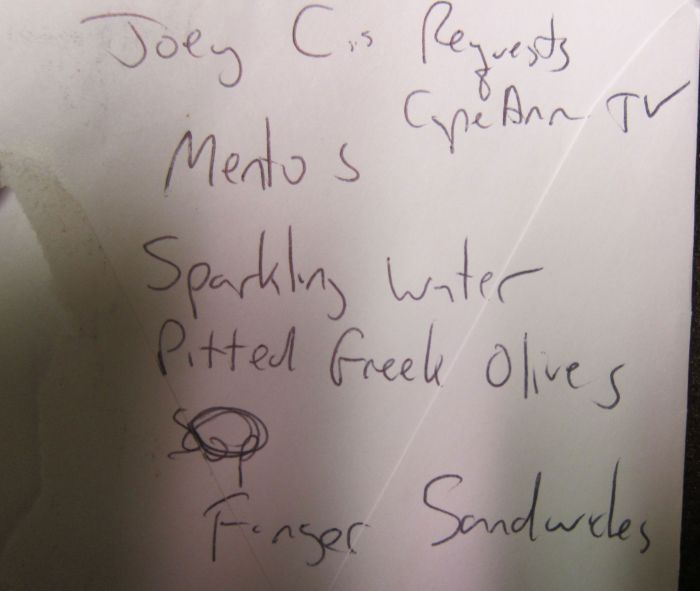 Joey C.'s Requests
Cape Ann TV
Mentos
Sparkling Water
Pitted Greek Olives
Finger Sandwiches